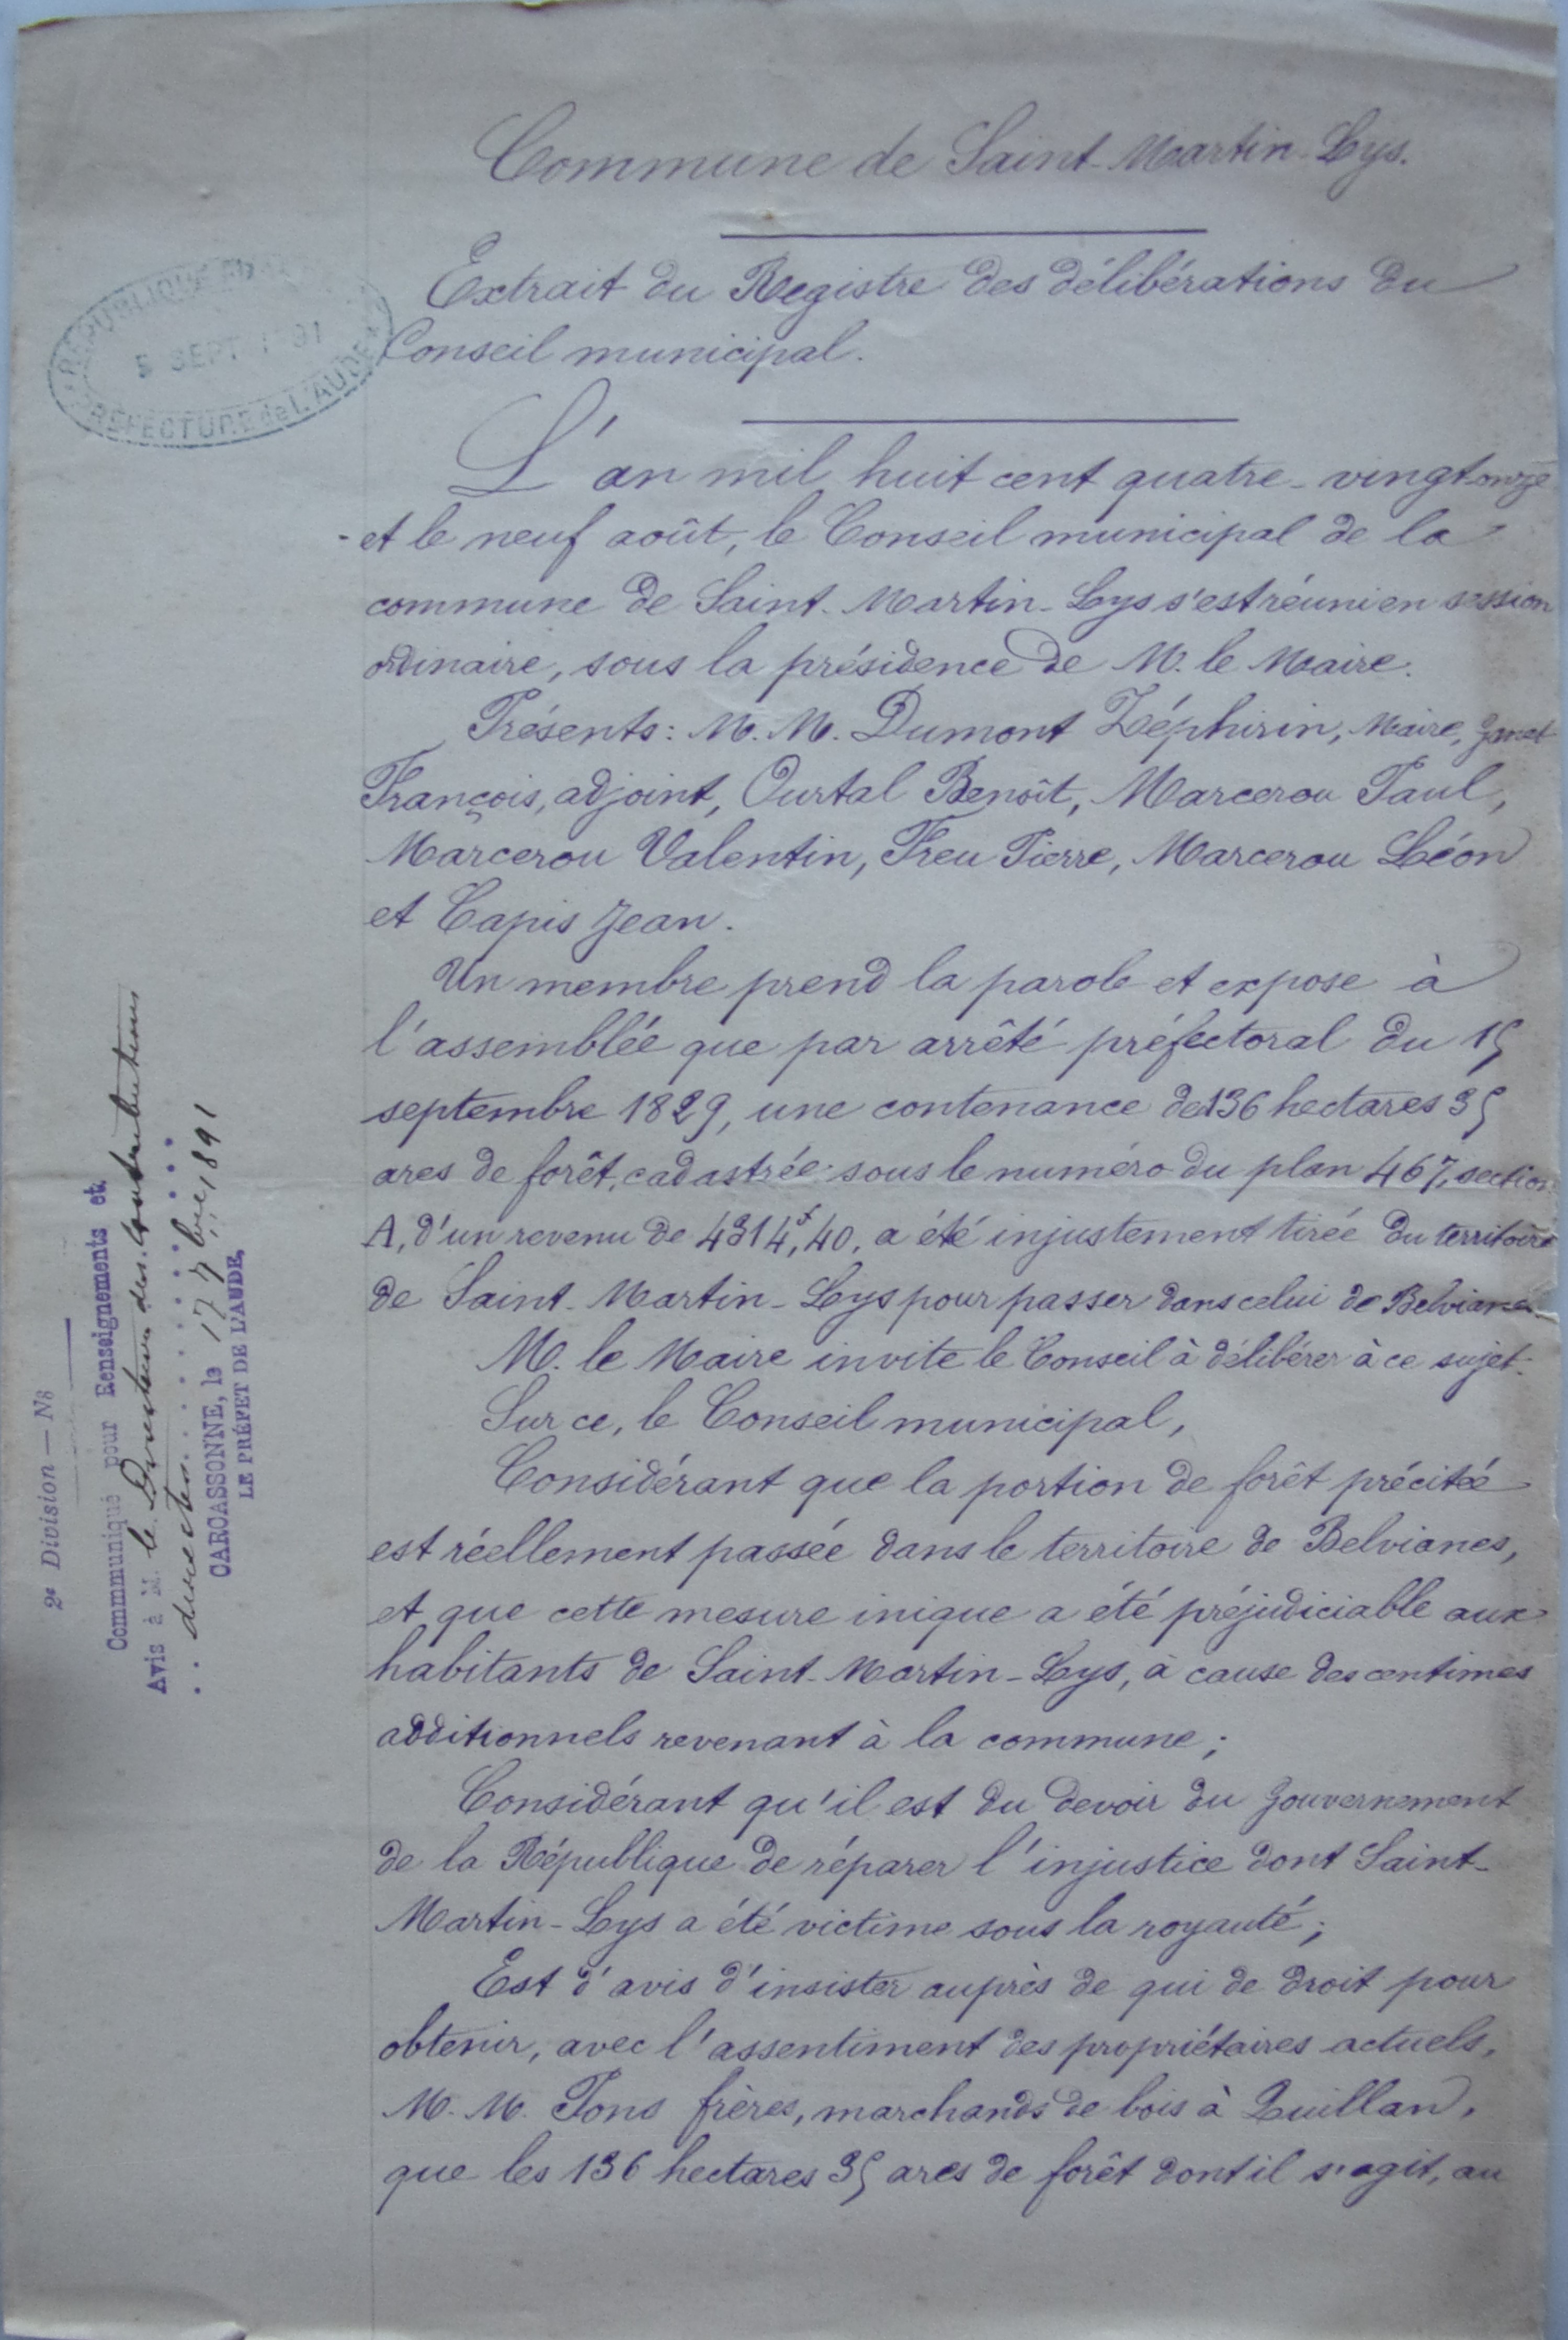 Commune de Saint-Martin-Lys.
Extrait du Registre des délibérations du
Conseil municipal.
L'an mil huit cent quatre-vingt-onze
et le neuf août, le Conseil municipal de la
commune de Saint-Martin-Lys s'est réuni en session
ordinaire, sous la présidence de M. le Maire.
Présents: M. M. Dumont Zéphirin, Maire,
François, adjoint, Ourtal Benoît, Marcerou Paul,
Marcerou Valentin, Freu Pierre, Marcerou Léon
et Capis Jean.
Un membre prend la parole et expose à
l'assemblée que par arrêté préfectoral du 15
septembre 1829, une contenance de 136 hectares 35
ares de forêt, cadastrée sous le numéro du plan 467, section
A, d'un revenu de 4314f,40, a été injustement tirée du territoire
de Saint-Martin-Lys pour passer dans celui de Belvianes.
M. le Maire invite le Conseil à délibérer à ce sujet.
Sur ce, le Conseil municipal,
Considérant que la portion de forêt précitée
est réellement passée dans le territoire de Belvianes,
et que cette mesure inique a été préjudiciable aux
habitants de Saint-Martin-Lys, à cause des centimes
additionnels revenant à la commune;
Considérant qu'il est du devoir du Gouvernement
de la République de réparer l'injustice dont Saint-
Martin-Lys a été victime sous la royauté;
Est d'avis d'insister auprès de qui de droit pour
obtenir, avec l'assentiment des propriétaires actuels,
M. M. Pons frères, marchands de bois à Quillan,
que les 136 hectares 35 ares de forêt dont il s'agit, au
RÉPUBLIQUE
5 SEPT 1891
PRÉFECTURE de L'AUDE
2e Division — No
Communiqué pour Renseignements et
Avis à M. le Directeur des Contributions
directes
CARCASSONNE, le 17 7bre 1891
LE PRÉFET DE L'AUDE,